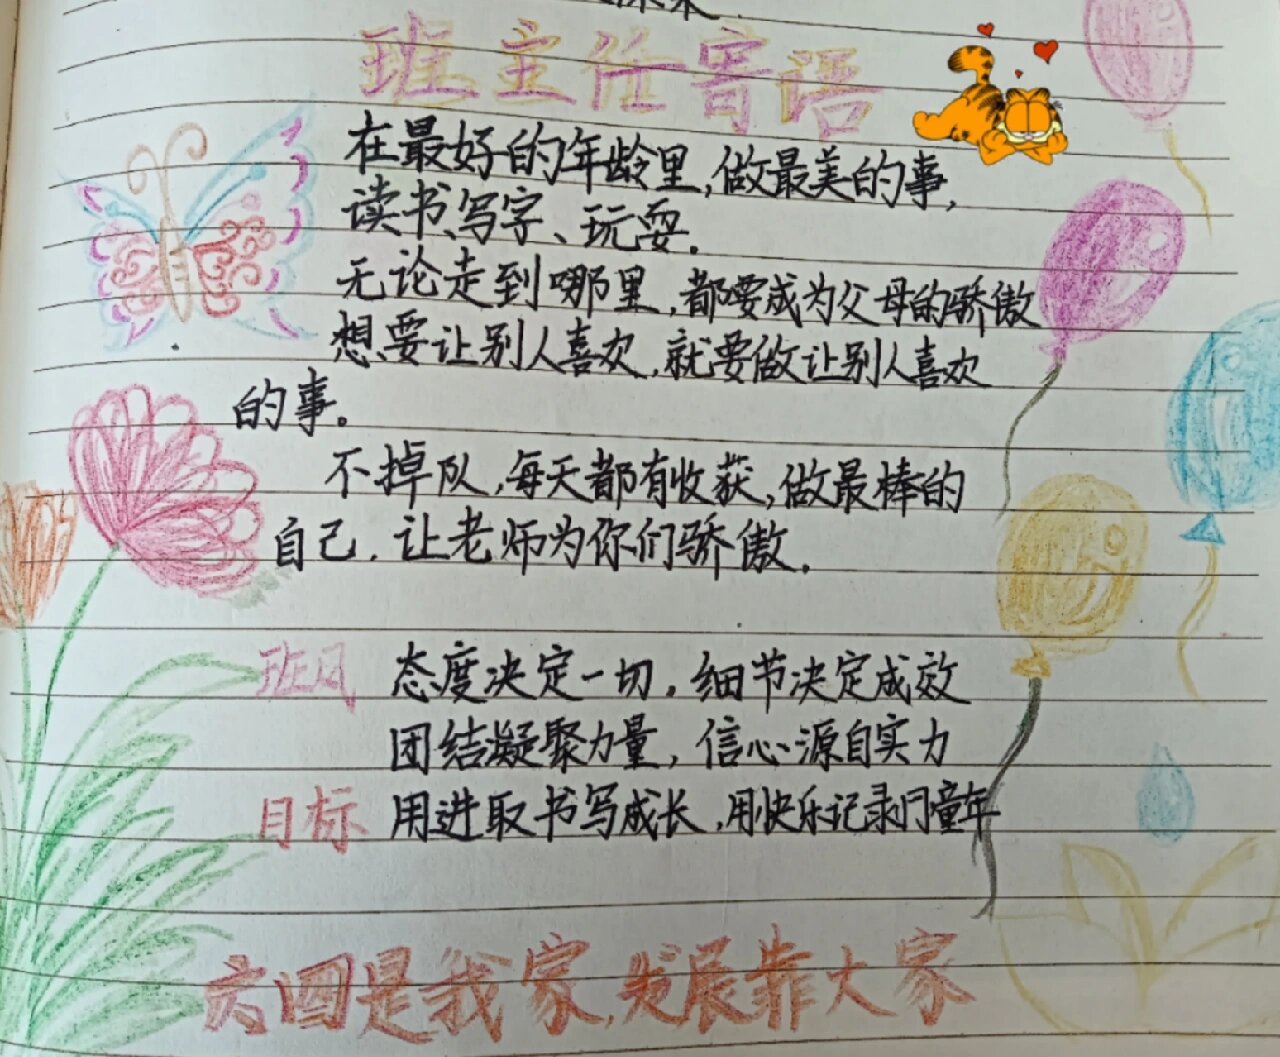 班主任寄语
在最好的年龄里,做最美的事,
读书、写字、玩耍.
无论走到哪里,都要成为父母的骄傲
想要让别人喜欢,就要做让别人喜欢
的事。
不掉队,每天都有收获,做最棒的
自己.让老师为你们骄傲.
班风 态度决定一切.细节决定成效
团结凝聚力量,信心源自实力
目标 用进取书写成长,用快乐记录门童年
六四是我家,发展靠大家